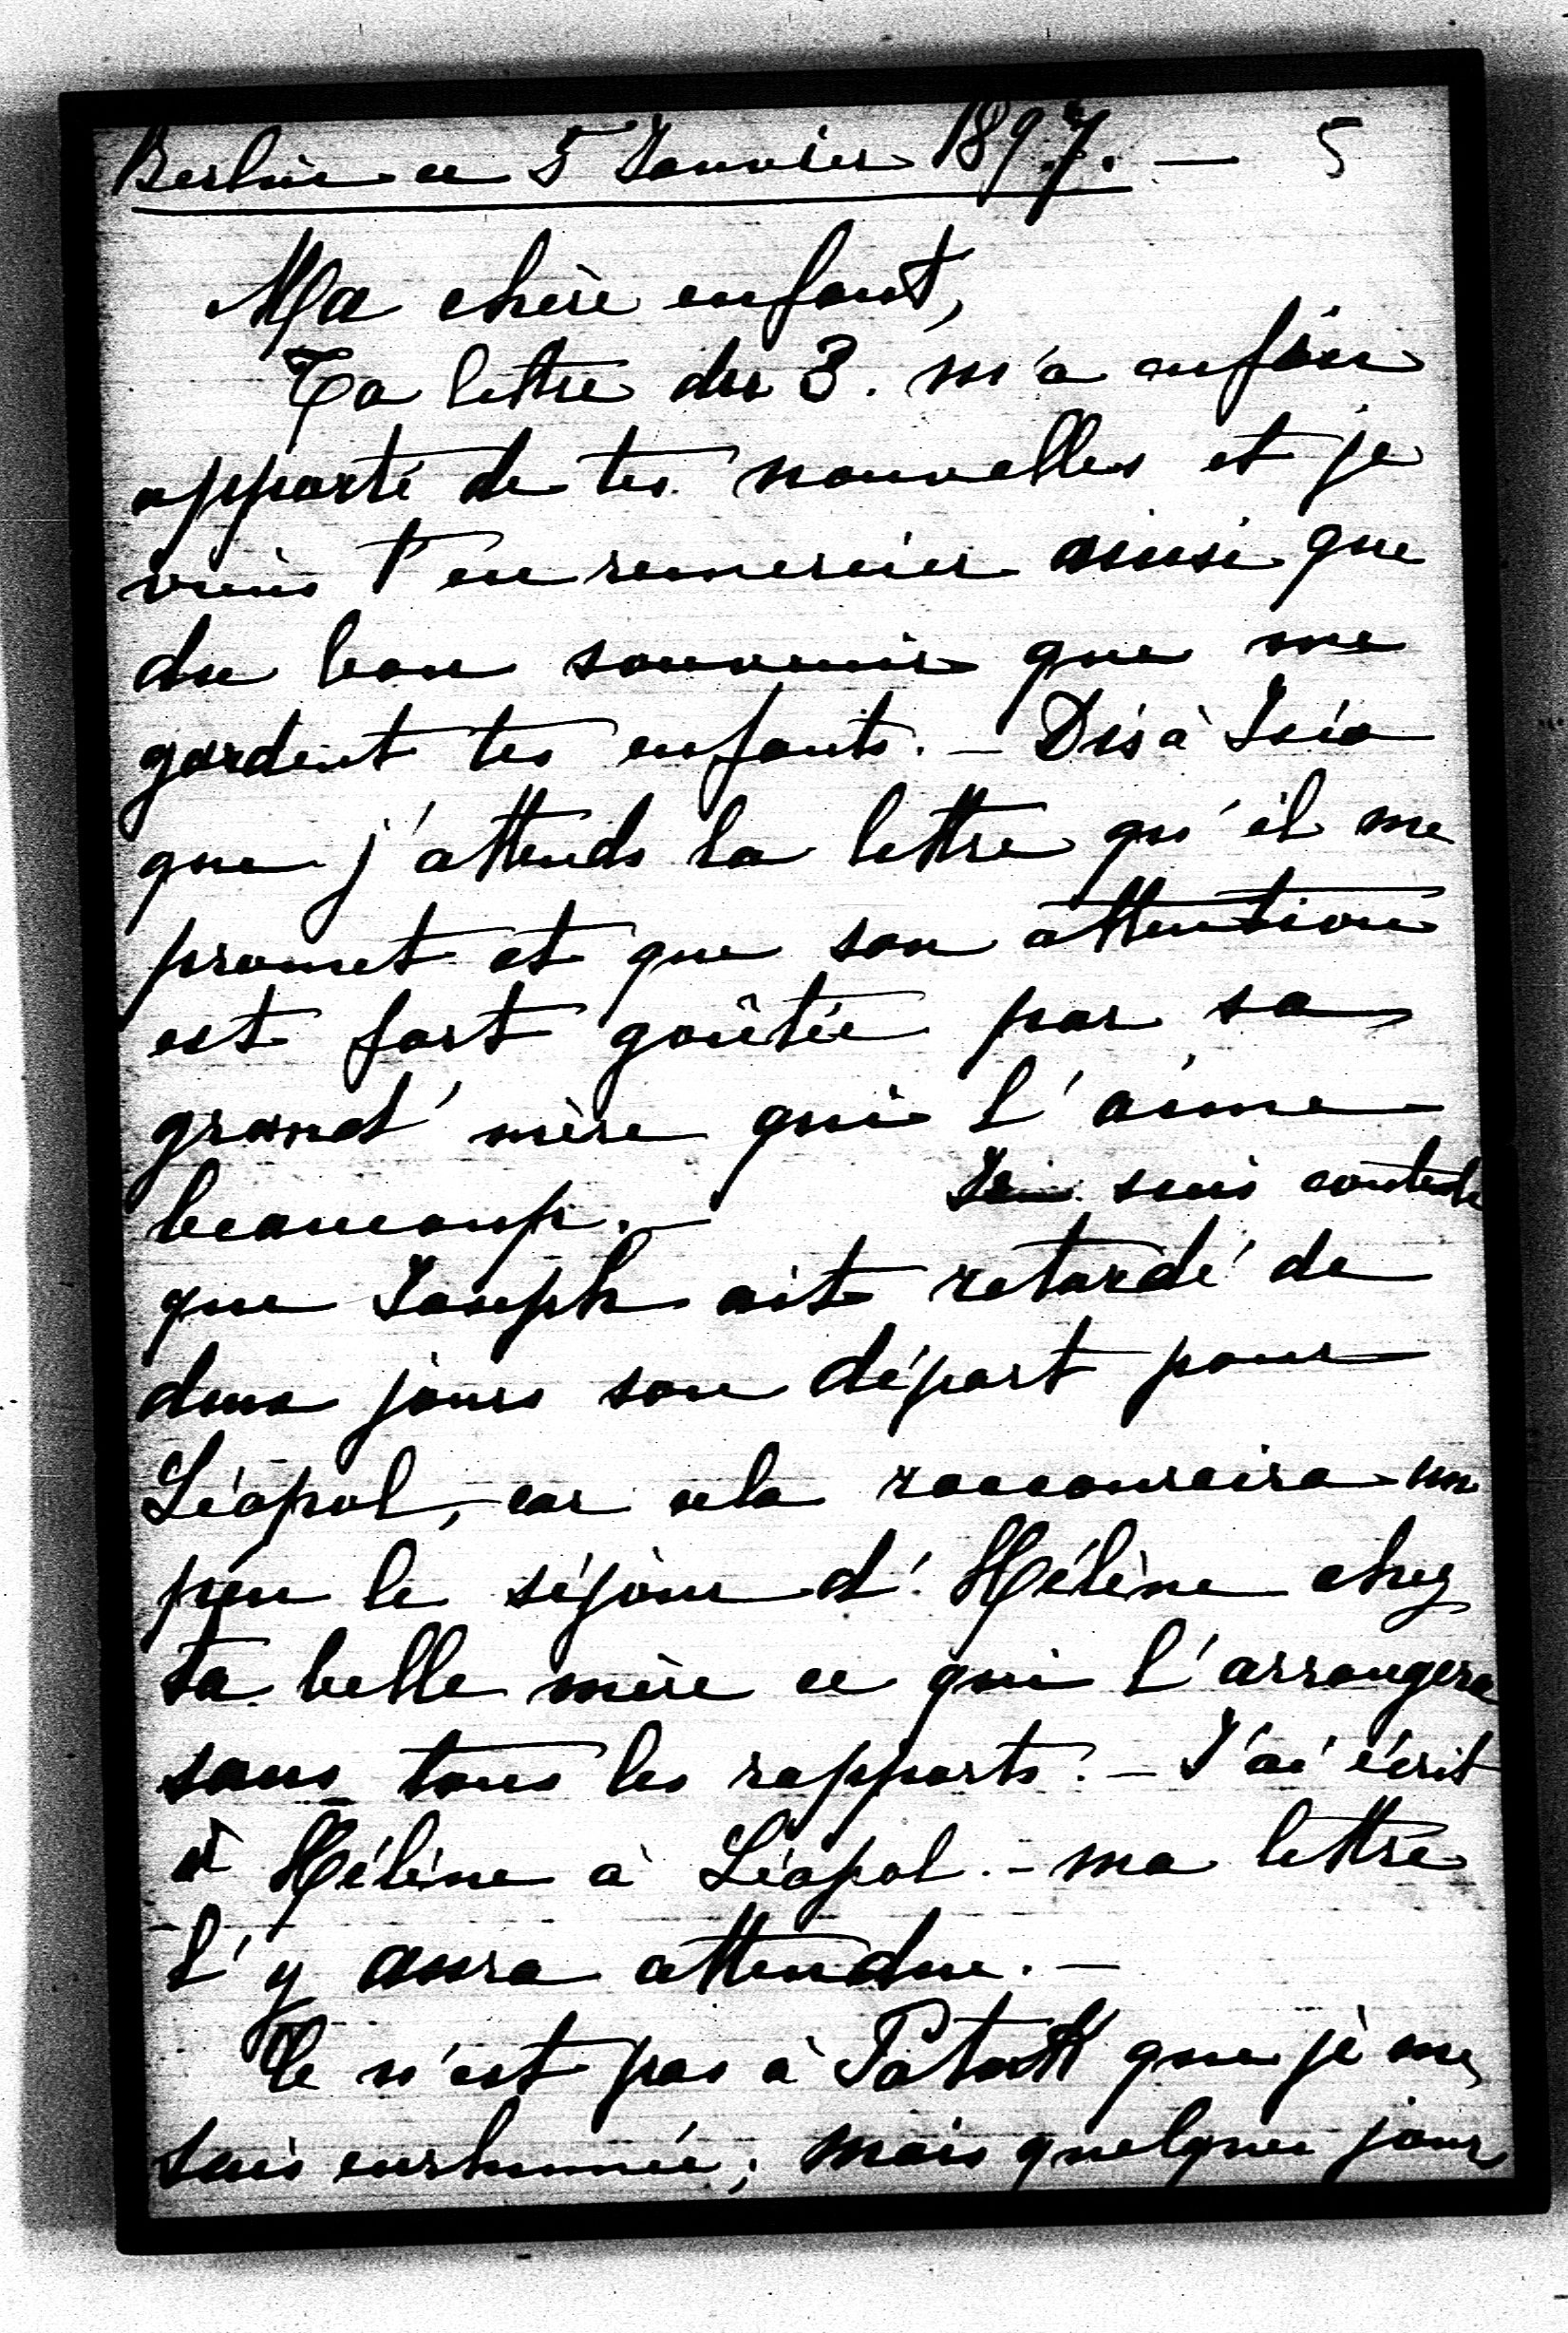 Berlin ce 5 Janvier 1897. — 5
Ma chère enfant,
Ta lettre du 3. m'a enfin
apporté de tes nouvelles et je
viens t'en remercier ainsi que
du bon souvenir que me
gardent tes enfants. — Dis à Isia
que j'attends la lettre qu'il me
promet et que son attention
est fort goûtée par sa
grand'mère qui l'aime
beaucoup. — suis contente
que Joseph ait retardé de
deux jours son départ pour
Léopol, car cela raccourcira un
peu le séjour d'Hélène chez
ta belle mère ce qui l'arrangera
sous tous les rapports. — J'ai écrit
à Hélène à Léopol. — ma lettre
l'y aura attendue. —
Ce n'est pas à Potok que je me
suis enrhumée; mais quelques jours